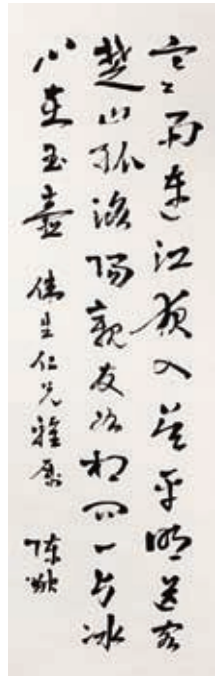 寒雨連江夜入吴平明送客
楚山孤洛陽親友如相问一片冰
心在玉壺 仁兄雅属 陈